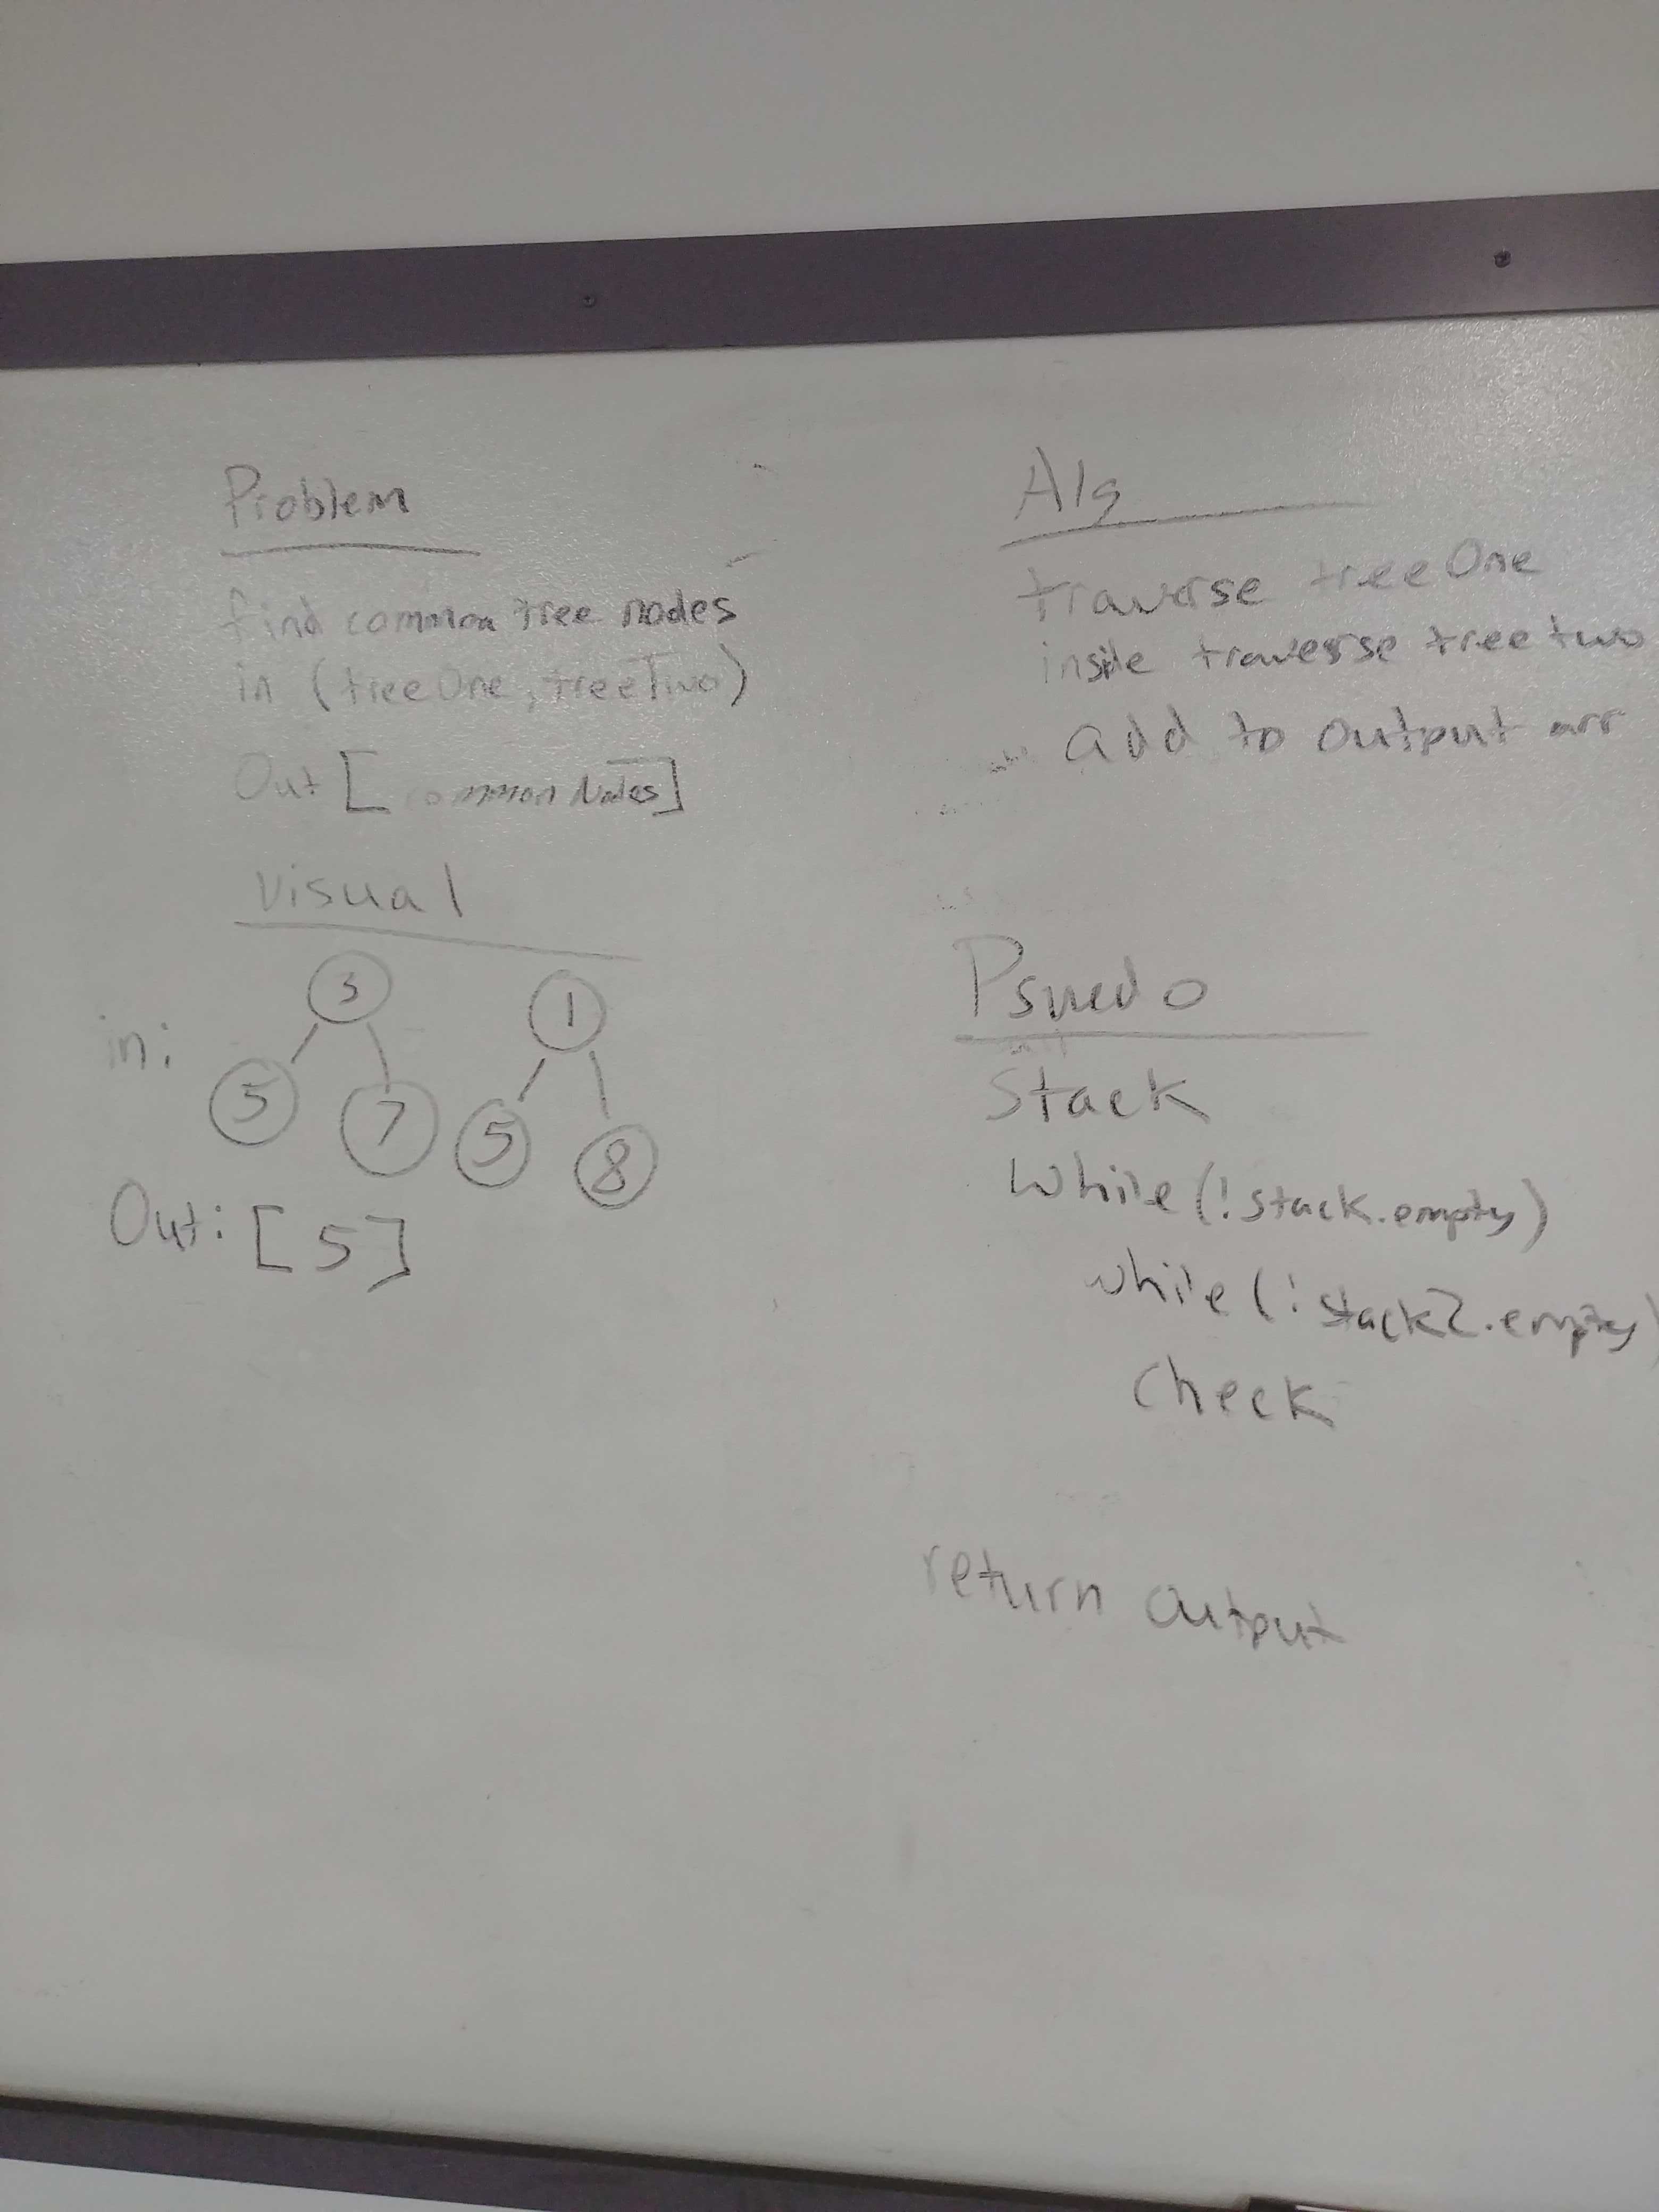 Problem
find common tree nodes
in (treeOne, treeTwo)
Out [commonNodes]
Visual
in:
3
5 7
1
5 8
Out: [5]
Alg
traverse treeOne
inside traverse tree two
add to output arr
Psuedo
Stack
while (!stack.empty)
while (!stack2.empty)
Check
return output